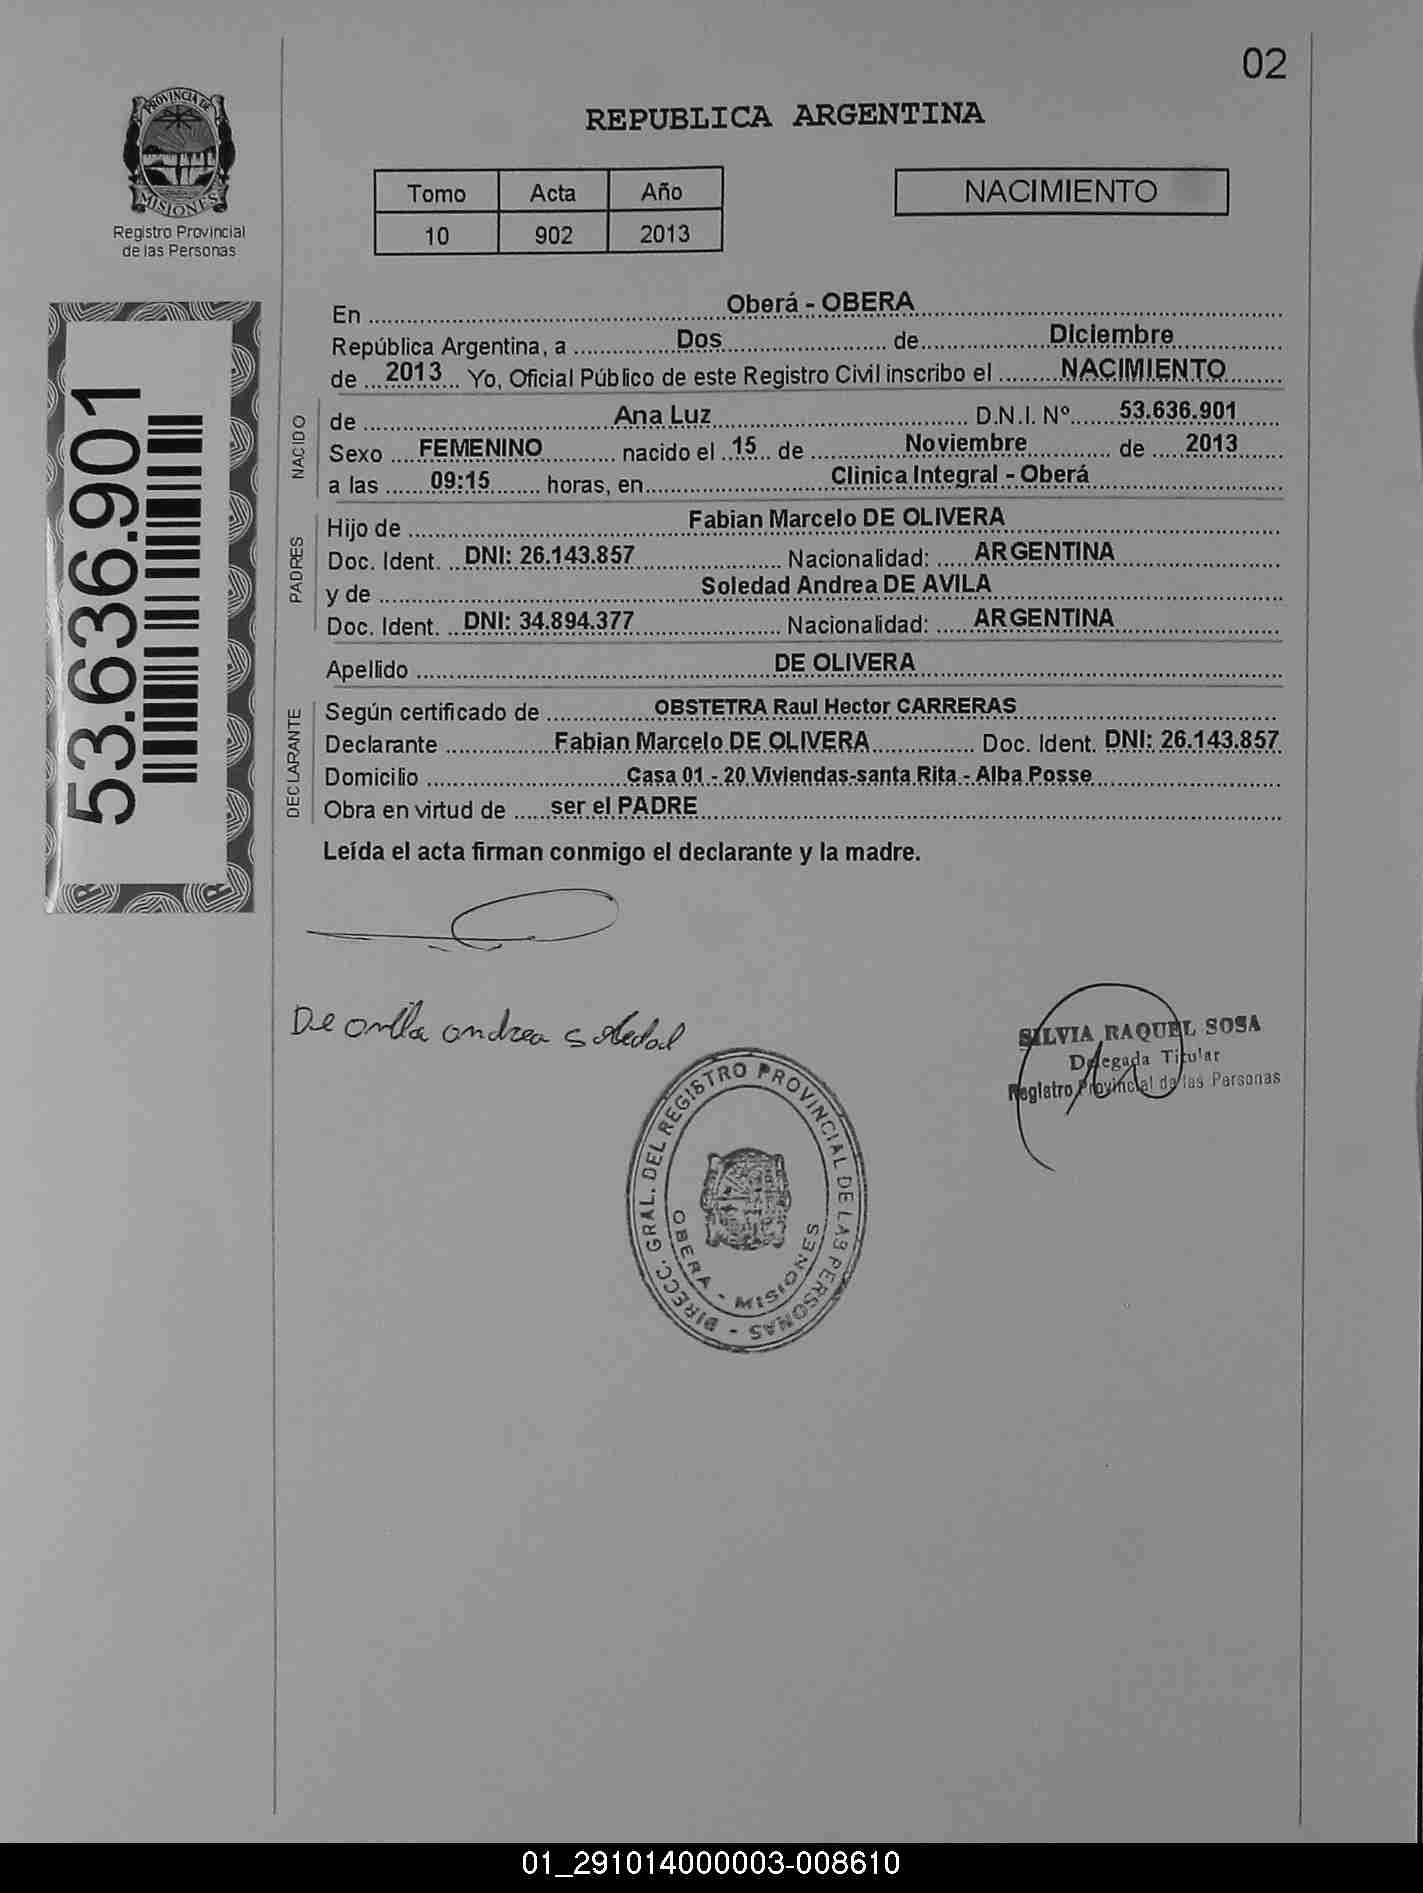 02
PROVINCIA DE
MISIONES
Registro Provincial
de las Personas
REPUBLICA ARGENTINA
Tomo Acta Año
10 902 2013
NACIMIENTO
53.636.901
En Oberá - OBERA
República Argentina, a Dos de Diciembre
de 2013 Yo, Oficial Público de este Registro Civil inscribo el NACIMIENTO
NACIDO
de Ana Luz D.N.I. Nº 53.636.901
Sexo FEMENINO nacido el 15 de Noviembre de 2013
a las 09:15 horas, en Clinica Integral - Oberá
PADRES
Hijo de Fabian Marcelo DE OLIVERA
Doc. Ident. DNI: 26.143.857 Nacionalidad: ARGENTINA
y de Soledad Andrea DE AVILA
Doc. Ident. DNI: 34.894.377 Nacionalidad: ARGENTINA
Apellido DE OLIVERA
DECLARANTE
Según certificado de OBSTETRA Raul Hector CARRERAS
Declarante Fabian Marcelo DE OLIVERA Doc. Ident. DNI: 26.143.857
Domicilio Casa 01 - 20 Viviendas-santa Rita - Alba Posse
Obra en virtud de ser el PADRE
Leída el acta firman conmigo el declarante y la madre.
De andrea soledad
SILVIA RAQUEL SOSA
Delegada Titular
Registro Provincial de las Personas
DIRECC. GRAL. DEL REGISTRO PROVINCIAL DE LAS PERSONAS -
OBERA - MISIONES
01_291014000003-008610